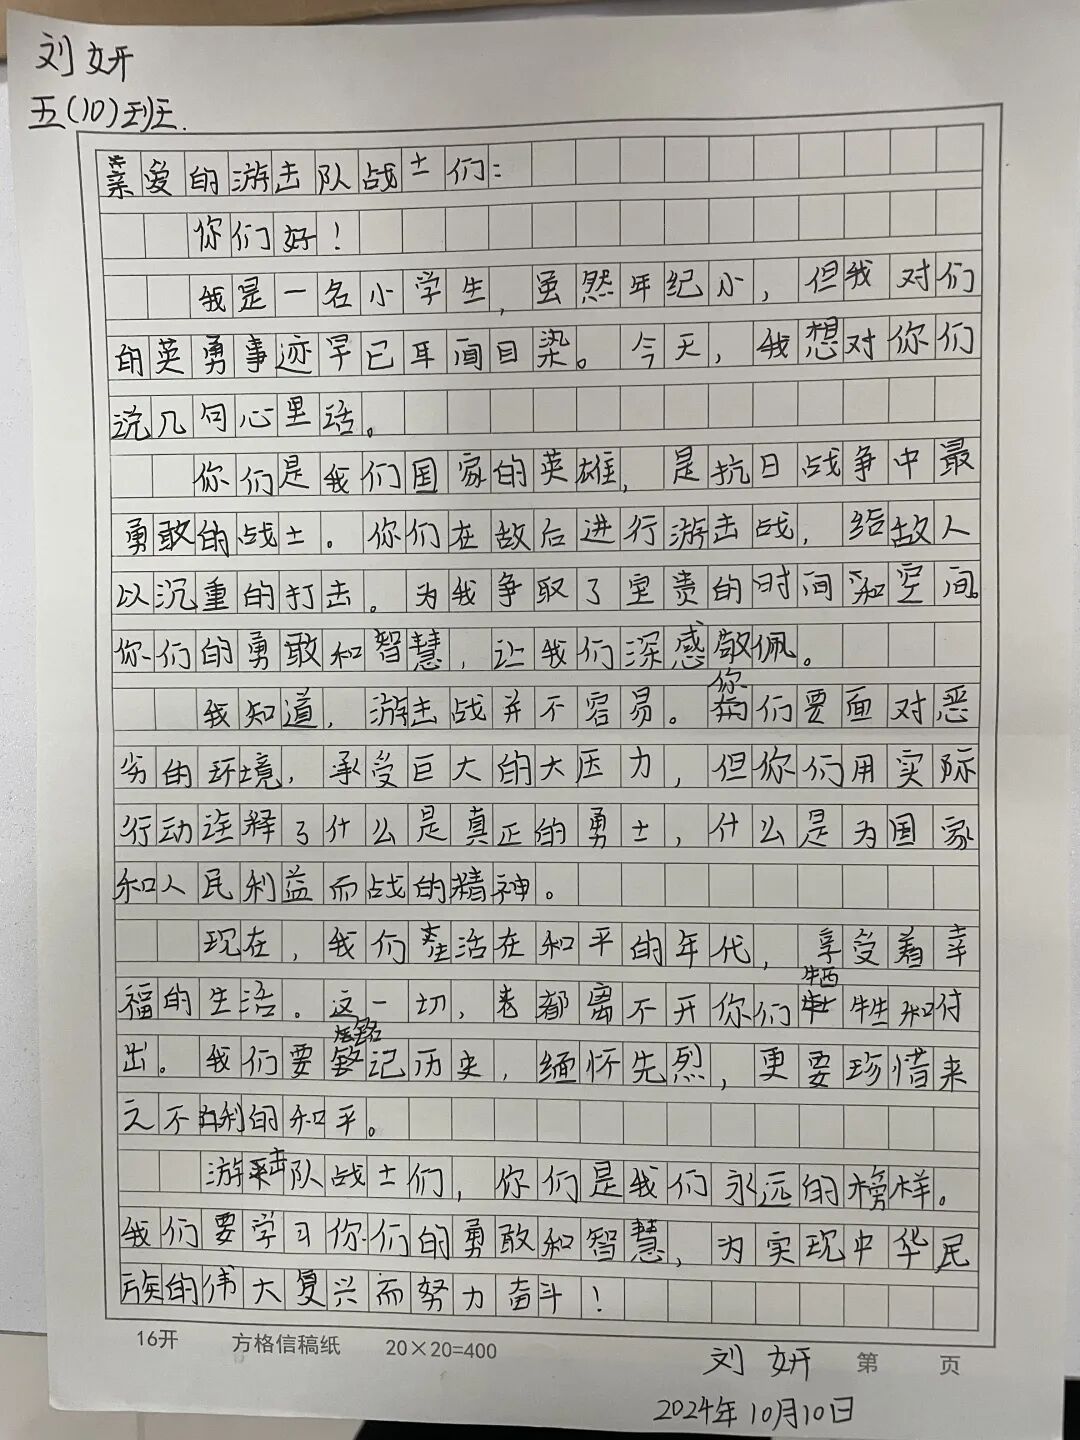 刘妍
五(10)班.
亲爱的游击队战士们:
你们好!
我是一名小学生,虽然年纪小,但我对们
的英勇事迹早已耳闻目染。今天,我想对你们
说几句心里话。
你们是我们国家的英雄,是抗日战争中最
勇敢的战士。你们在敌后进行游击战,给敌人
以沉重的打击。为我争取了宝贵的时间和空间。
你们的勇敢和智慧,让我们深感敬佩。
我知道,游击战并不容易。你们要面对恶
劣的环境,承受巨大的大压力,但你们用实际
行动诠释了什么是真正的勇士,什么是为国家
和人民利益而战的精神。
现在,我们生活在和平的年代,享受着幸
福的生活。这一切,都离不开你们牺牲和付
出。我们要铭记历史,缅怀先烈,更要珍惜来
之不利的和平。
游击队战士们,你们是我们永远的榜样。
我们要学习你们的勇敢和智慧,为实现中华民
族的伟大复兴而努力奋斗!
16开 方格信稿纸 20×20=400
刘妍 第 页
2024年10月10日